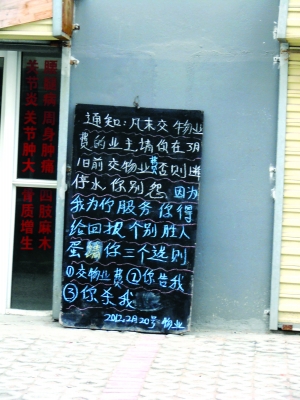 腰腿痛 周身肿痛
关节炎 关节肿大
四肢麻木
骨质增生
通知:凡未交物业
费的业主请你在3月
1日前交物业费否则
停水你别怨 因为
我为你服务你得
给回报 个别胜人
蛋 你三个选则
①交物业费②你告我
③你杀我
2012.2.20号 物业